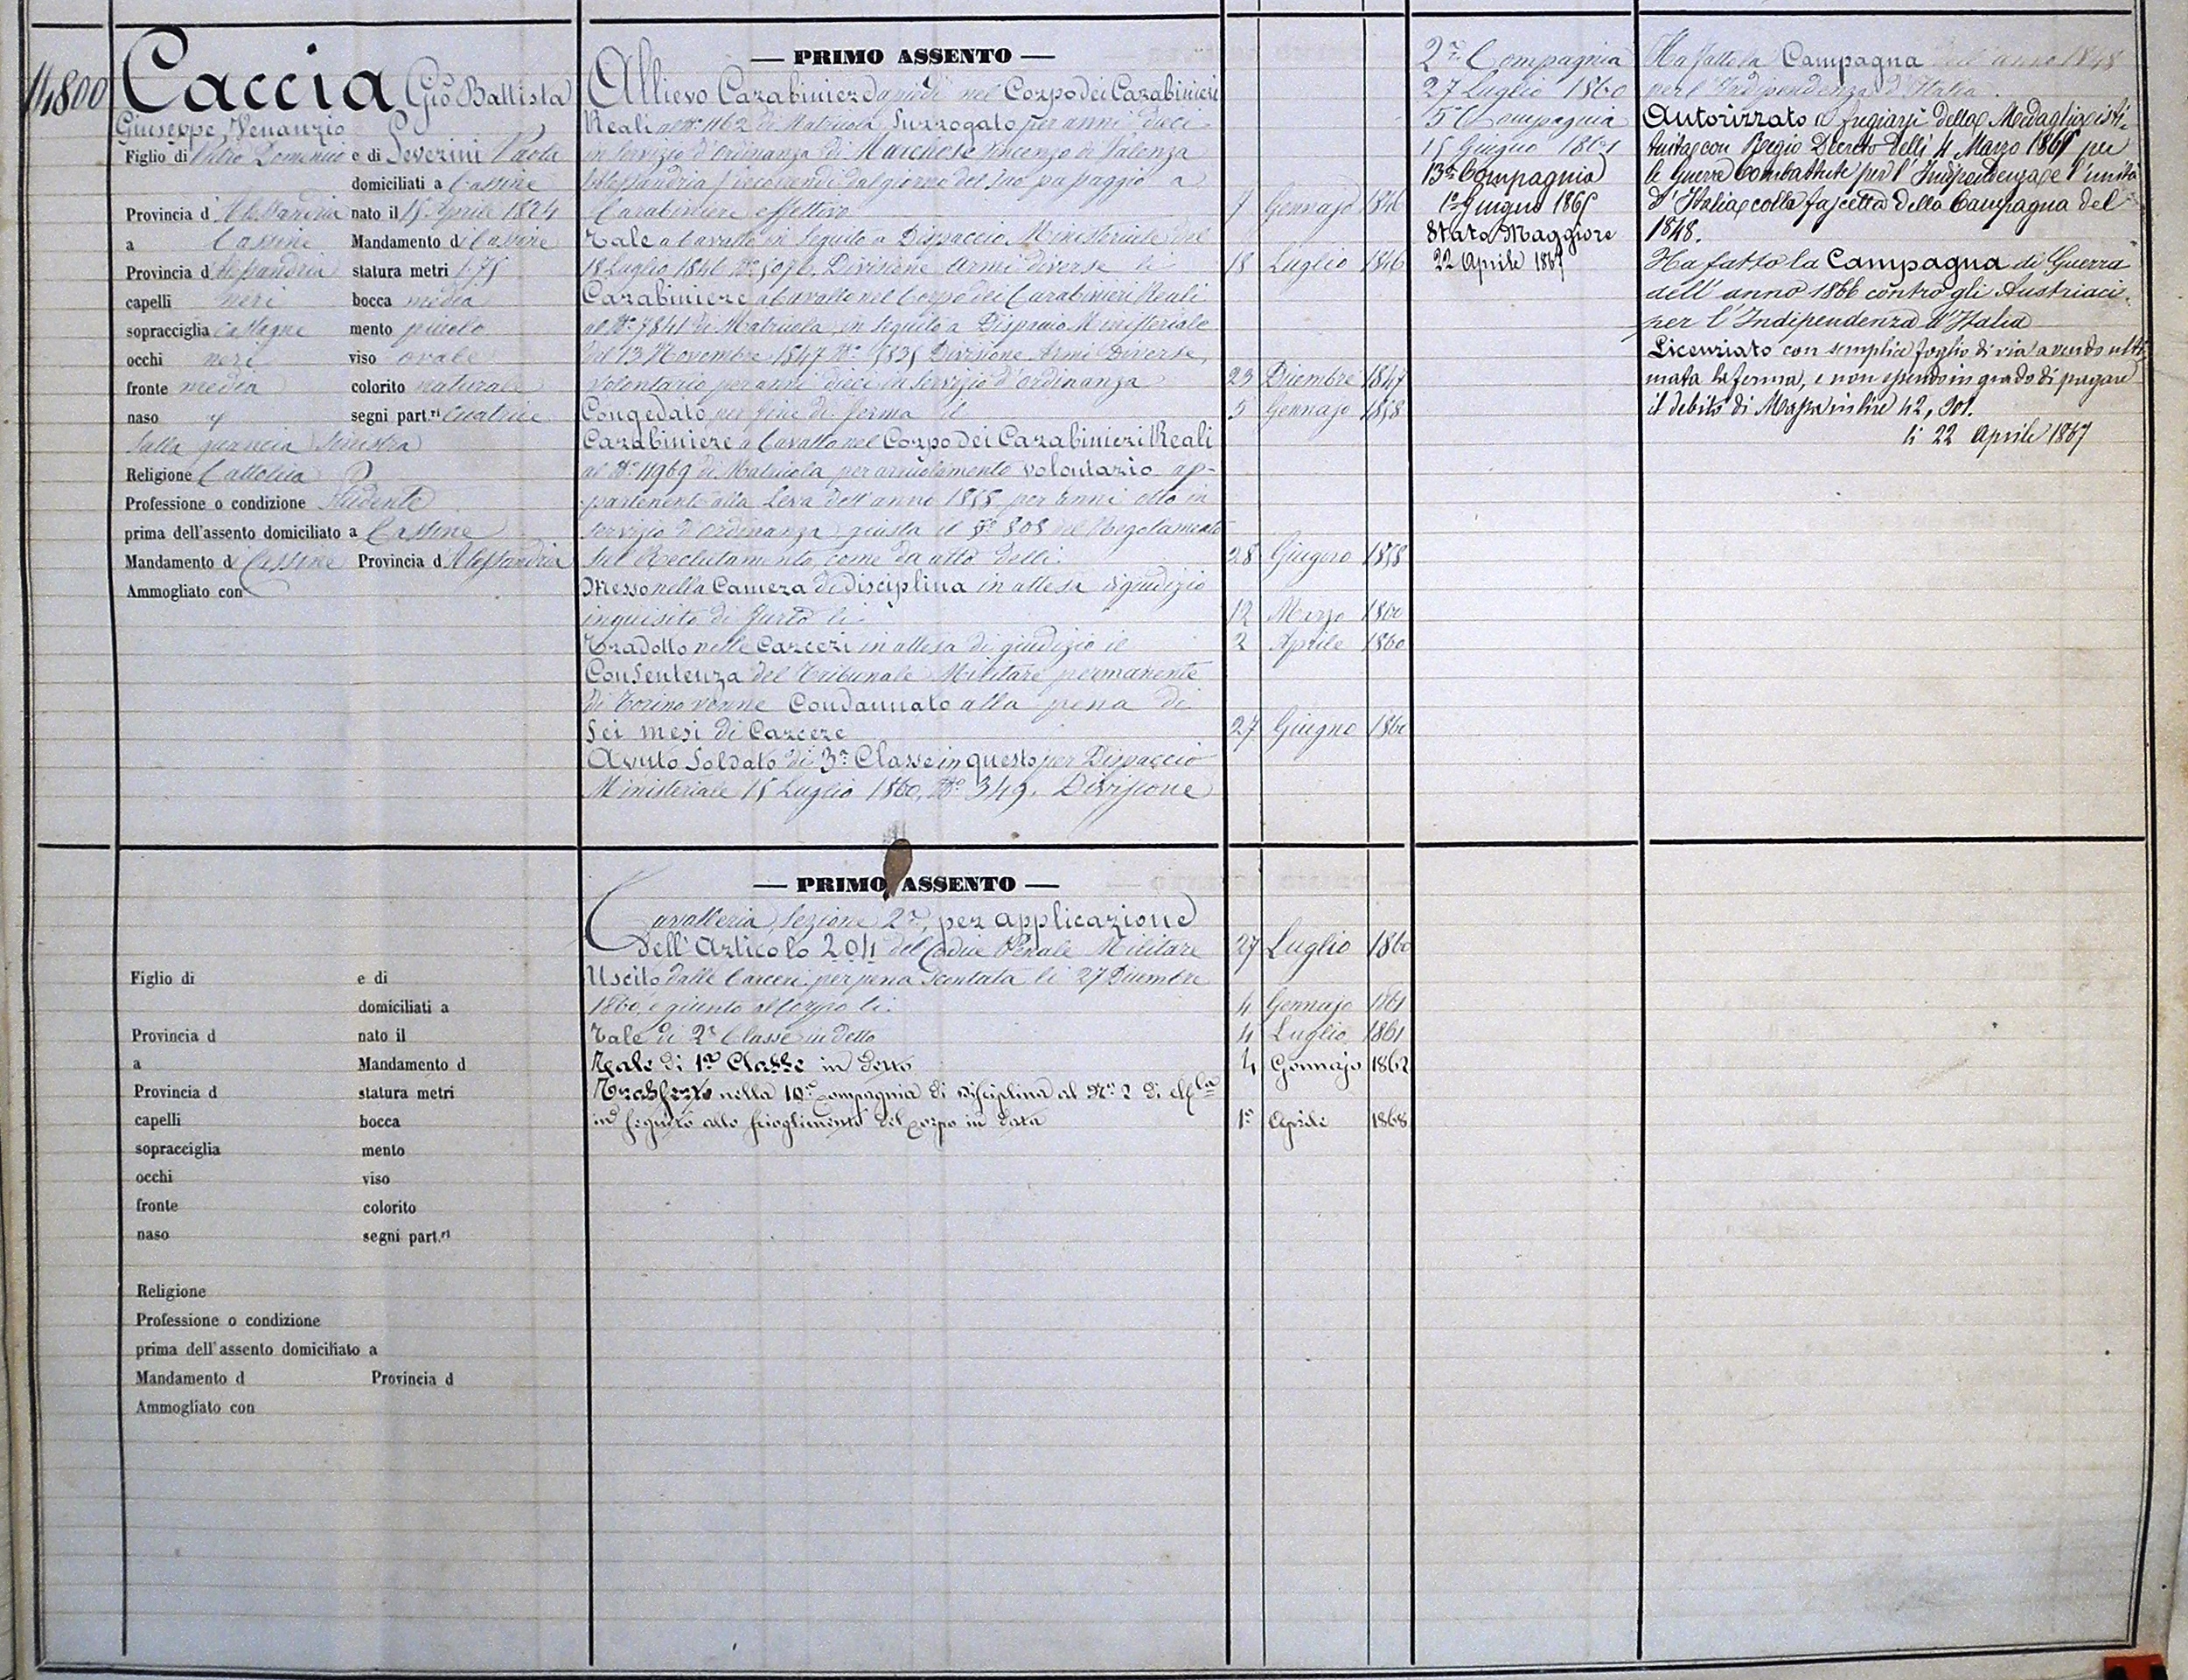 14800
Caccia Gio Battista
Giuseppe, Venanzio
Figlio di Pietro Domenico e di Severini Paola
domiciliati a Cassine
Provincia d'Alessandria nato il 15 Aprile 1824
a Cassine Mandamento di Cassine
Provincia d'Alessandria statura metri 1.75
capelli neri bocca media
sopracciglia castagne mento piccolo
occhi neri viso ovale
fronte media colorito naturale
naso segni part.ri Cicatrice
sulla guancia sinistra
Religione Cattolica
Professione o condizione Studente
prima dell'assento domiciliato a Cassine
Mandamento di Cassine Provincia d'Alessandria
Ammogliato con
— PRIMO ASSENTO —
Allievo Carabiniere a piedi nel Corpo dei Carabinieri
Reali al N.° 1162 di Matricola, Surrogato per anni dieci
in servizio d'ordinanza di Marchese Vincenzo di Valenza
(Alessandria) decorrendi dal giorno del suo passaggio a
Carabiniere effettivo 7 Gennajo 1846
Tale a Cavallo in seguito a Dispaccio Ministeriale del
18 Luglio 1846 N.° 5076. Divisione Armi diverse li 18 Luglio 1846
Carabiniere a Cavallo nel Corpo dei Carabinieri Reali
al N.° 7841 di Matricola, in seguito a Dispaccio Ministeriale
del 13 Novembre 1847 N.° 5835 Divisione Armi Diverse,
volontario per anni dieci in servizio d'ordinanza 23 Dicembre 1847
Congedato per fine di ferma il 5 Gennajo 1858
Carabiniere a Cavallo nel Corpo dei Carabinieri Reali
al N.° 11969 di Matricola per arruolamento volontario ap-
partenente alla Leva dell'anno 1855 per anni otto in
servizio d'ordinanza, giusta il §° 808 del Regolamento
sul Reclutamento, come da atto delli. 28 Giugno 1858
Messo nella Camera di Disciplina in attesa di giudizio
inquisito di furto li 12 Marzo 1860
Tradotto nelle Carceri in attesa di giudizio il 2 Aprile 1860
Con Sentenza del Tribunale Militare permanente
di Torino venne Condannato alla pena di
Sei mesi di Carcere 27 Giugno 1860
Avuto Soldato di 3.a Classe in questo per Dispaccio
Ministeriale 15 Luglio 1860, N.° 349. Divisione
2.a Compagnia
27 Luglio 1860
5.a Compagnia
15 Giugno 1861
13.a Compagnia
1° Giugno 1865
Stato Maggiore
22 Aprile 1867
Ha fatto la Campagna dell'anno 1848
per l'Indipendenza d'Italia.
Autorizzato a fregiarsi della Medaglia isti-
tuita con Regio Decreto delli 4 Marzo 1865 per
le Guerre Combattute per l'Indipendenza e l'unità
d'Italia colla fascetta della Campagna del
1848.
Ha fatto la Campagna di Guerra
dell'anno 1866 contro gli Austriaci
per l'Indipendenza d'Italia
Licenziato con semplice foglio di via avendo ulti-
mata la ferma, e non essendo in grado di pagare
il debito di Massa in lire 42, 90.
li 22 Aprile 1867
— PRIMO ASSENTO —
Cavalleria, Sezione 2.a, per applicazione
dell'Articolo 204 del Codice Penale Militare 27 Luglio 1860
Uscito dalle Carceri per pena scontata li 27 Dicembre
1860, e giunto al Corpo li. 4 Gennajo 1861
Tale di 2.a Classe in detto 4 Luglio 1861
Tale di 1.a Classe in detto 4 Gennajo 1862
Trasferto nella 10.a Compagnia di Disciplina al N.° 2 di
in seguito allo scioglimento del corpo in data 1° Aprile 1868
Figlio di e di
domiciliati a
Provincia d nato il
a Mandamento d
Provincia d statura metri
capelli bocca
sopracciglia mento
occhi viso
fronte colorito
naso segni part.ri
Religione
Professione o condizione
prima dell'assento domiciliato a
Mandamento d Provincia d
Ammogliato con